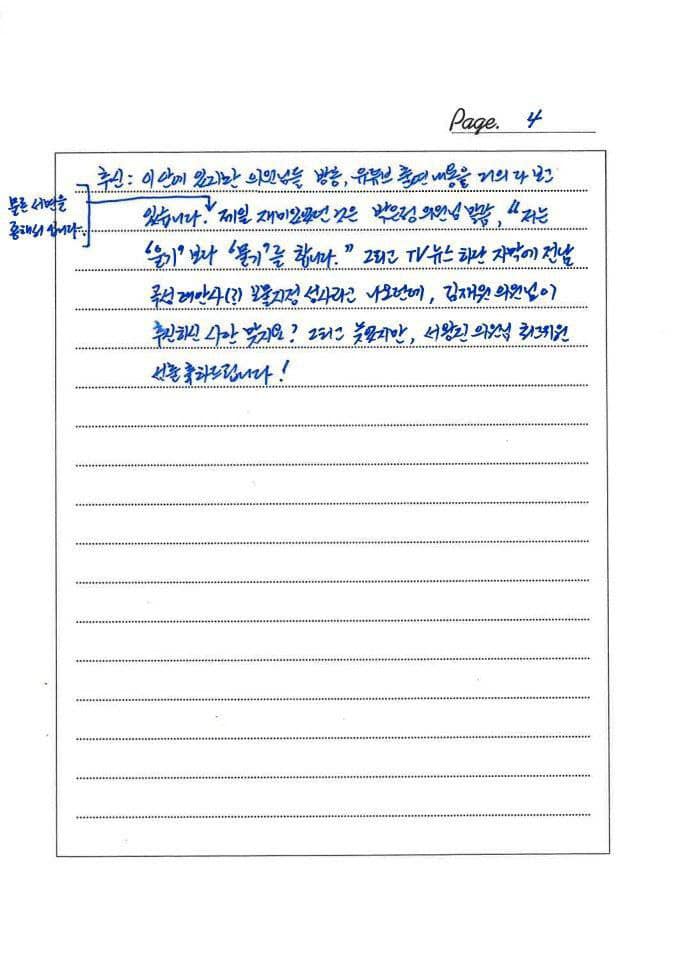 Page. 4
추신: 이 안에 있지만 의원님들 방송, 유튜브 출연 내용을 거의 다 보고
물론 서면을
통해서 입니다..
있습니다. 제일 재미있었던 것은 박은정 의원님 말씀, “저는
‘울기’ 보다 ‘물기’를 합니다.” 그리고 TV 뉴스 하단 자막에 전남
곡성 태안사(?) 보물지정 성사라고 나오던데, 김재원 의원님이
추진하신 사안 맞지요? 그리고 늦었지만, 서왕진 의원님 최고위원
선출 축하드립니다!